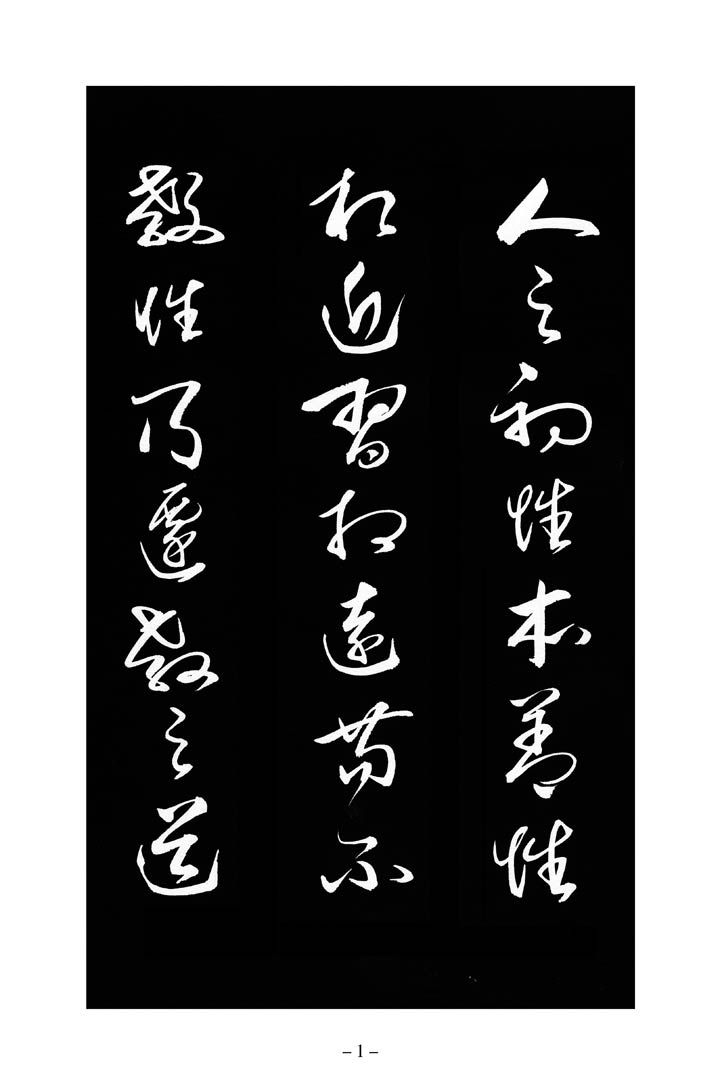 人之初性本善性
相近習相遠苟不
教性乃遷教之道
– 1 –